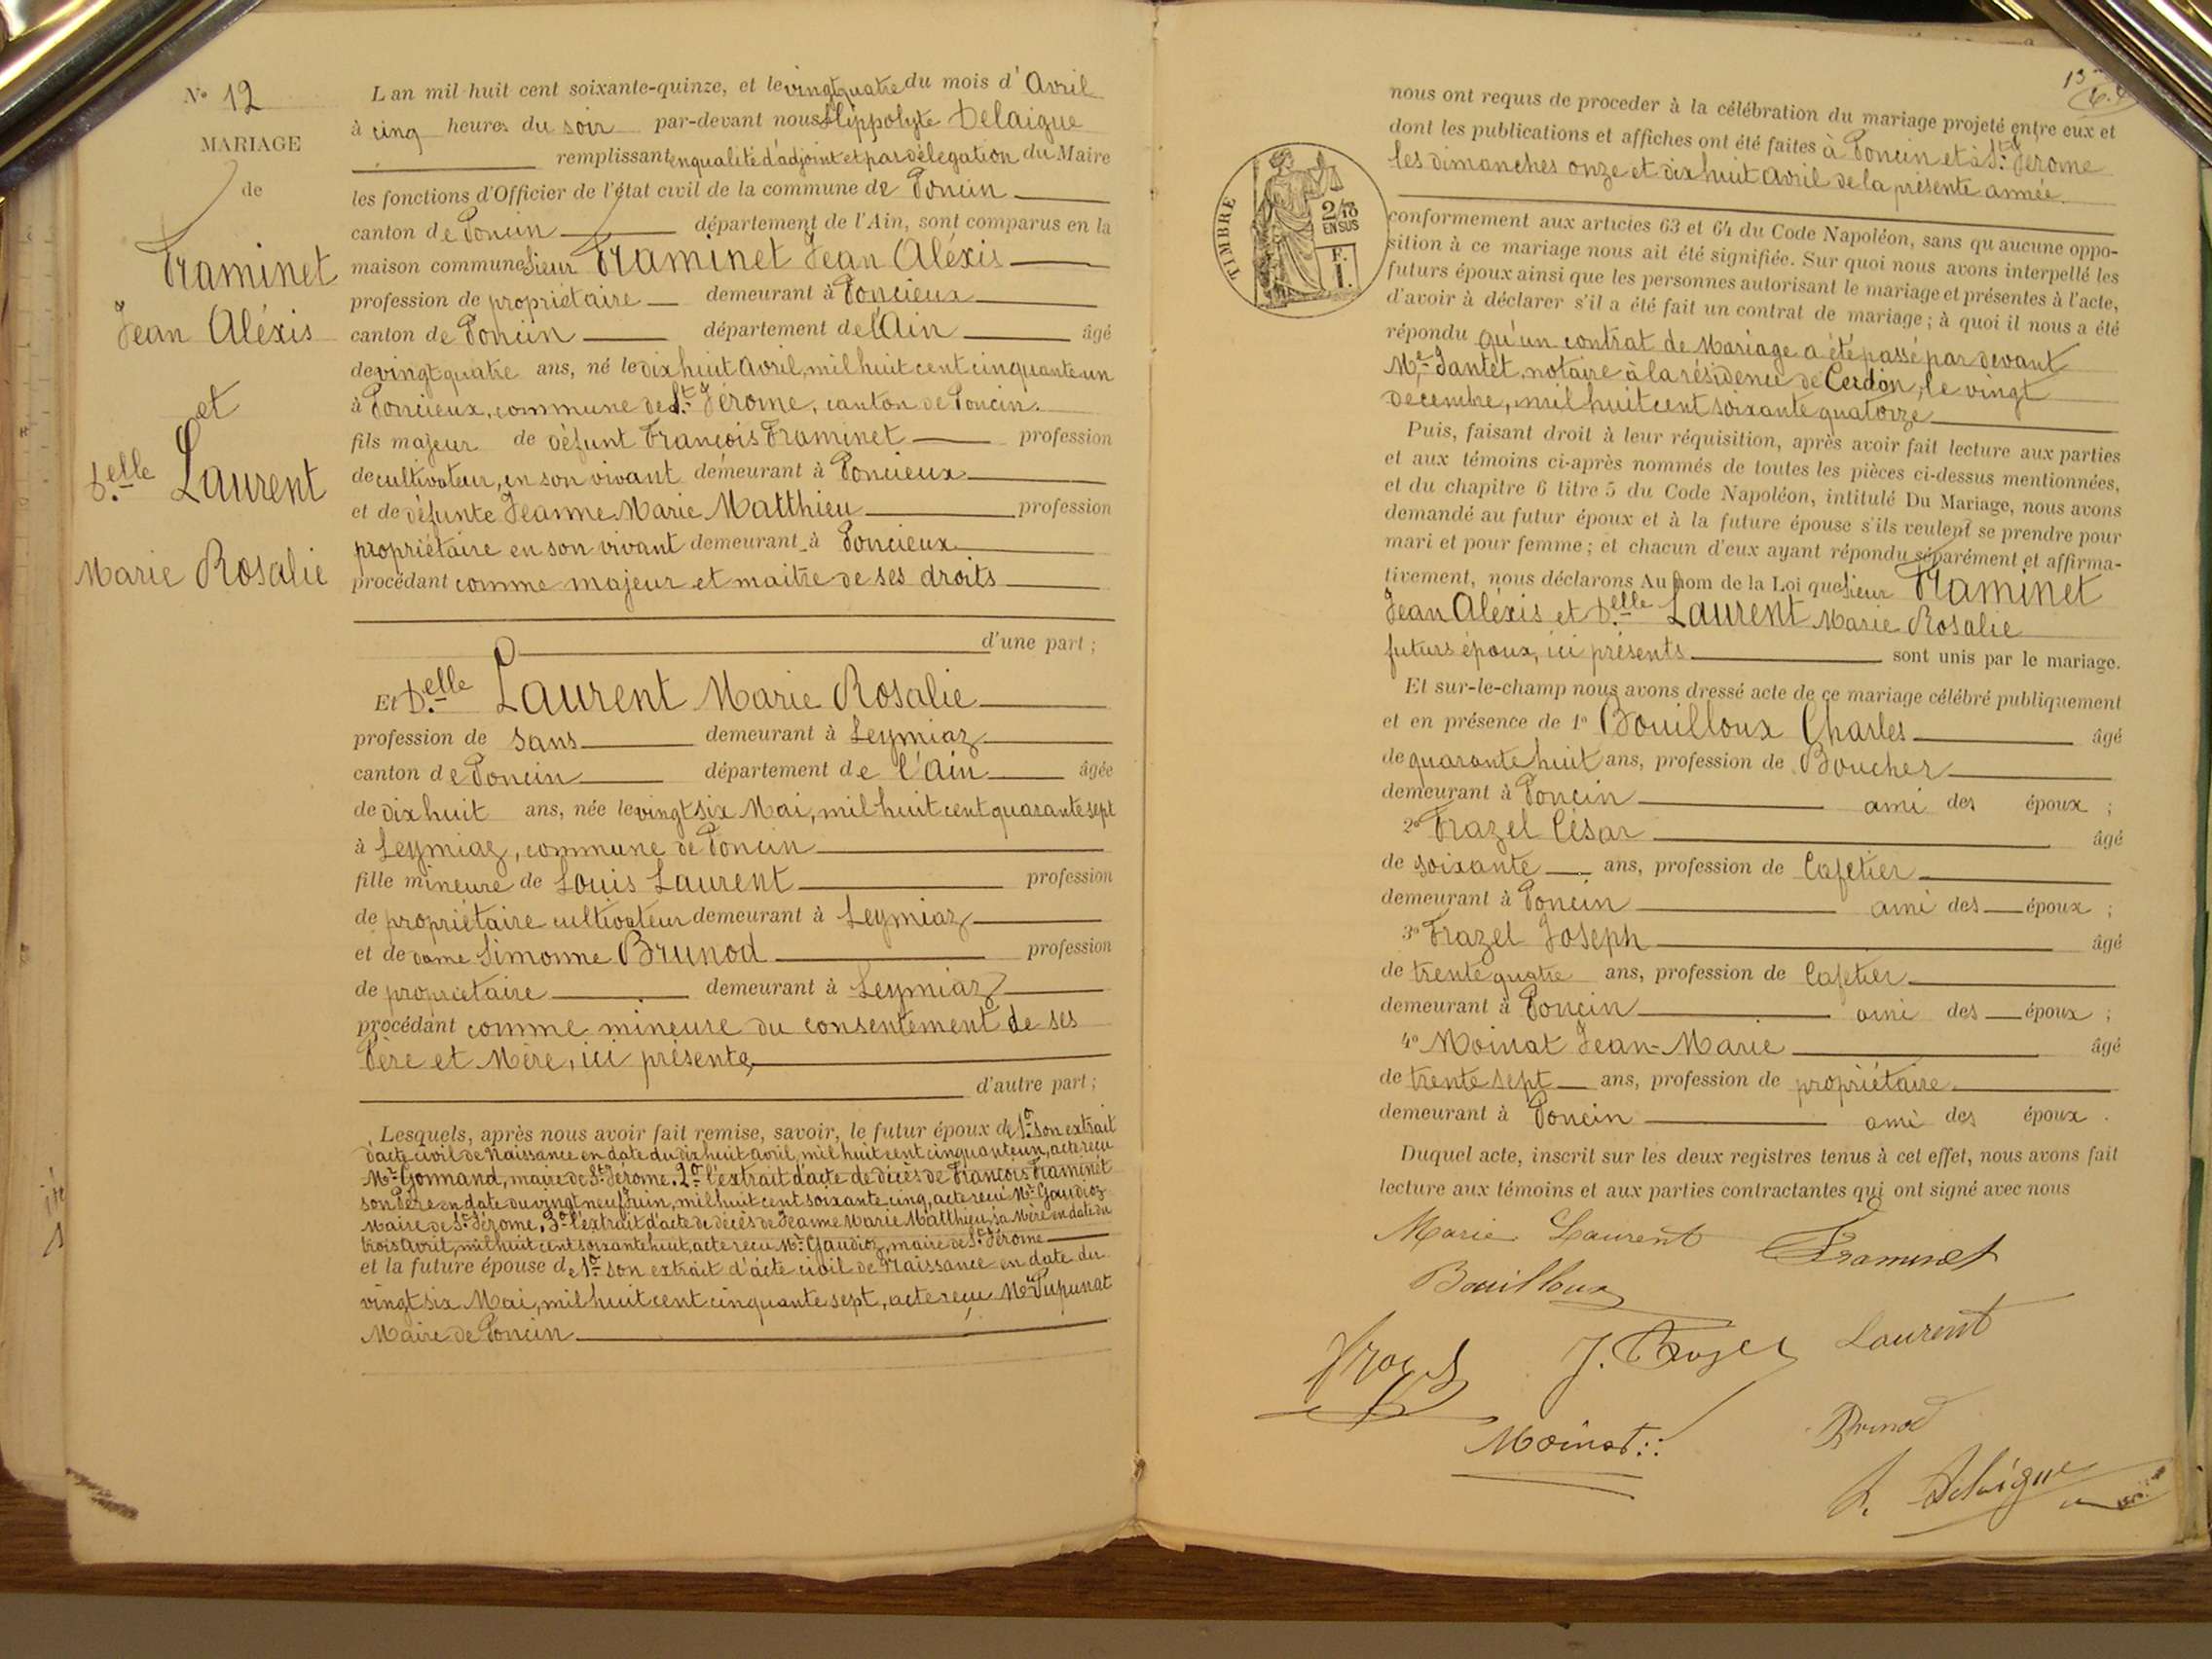 N° 12
MARIAGE
de
Framinet
Jean Aléxis
et
D.elle Laurent
Marie Rosalie
L an mil huit cent soixante-quinze, et le vingt quatre du mois d' Avril
à cinq heures du soir par-devant nous Hippolyte Delaigue
remplissant en qualité d'adjoint et par délégation du Maire
les fonctions d'Officier de l'état civil de la commune de Poncin
canton de Poncin département de l'Ain, sont comparus en la
maison commune Sieur Framinet Jean Aléxis
profession de propriétaire demeurant à Poncieux
canton de Poncin département de l'Ain âgé
de vingt quatre ans, né le dix huit Avril, mil huit cent cinquante un
à Poncieux, commune de St. Jérome, canton de Poncin.
fils majeur de défunt François Framinet profession
de cultivateur, en son vivant demeurant à Poncieux
et de défunte Jeanne Marie Matthieu profession
propriétaire en son vivant demeurant à Poncieux
procédant comme majeur et maitre de ses droits
d'une part ;
Et D.elle Laurent Marie Rosalie
profession de sans demeurant à Leymiaz
canton de Poncin département de l'Ain âgée
de dix huit ans, née le vingt six Mai, mil huit cent quarante sept
à Leymiaz, commune de Poncin
fille mineure de Louis Laurent profession
de propriétaire cultivateur demeurant à Leymiaz
et de dame Simonne Brunod profession
de propriétaire demeurant à Leymiaz
procédant comme mineure du consentement de ses
Père et Mère, ici présents
d'autre part ;
Lesquels, après nous avoir fait remise, savoir, le futur époux de 1° son extrait
d'acte civil de Naissance en date du dix huit avril, mil huit cent cinquante un, acte reçu
Mr. Gonnand, maire de St. Jérome. 2° l'extrait d'acte de décès de François Framinet
son Père en date du vingt neuf Juin, mil huit cent soixante cinq, acte reçu Mr. Gaudioz
Maire de St. Jérome, 3° l'extrait d'acte de décès de Jeanne Marie Matthieu, sa Mère en date du
trois Avril, mil huit cent soixante huit, acte reçu Mr. Gaudioz, maire de St. Jérome
et la future épouse de 1° son extrait d'acte civil de Naissance en date du
vingt six Mai, mil huit cent cinquante sept, acte reçu Mr Pupunat
Maire de Poncin
13
TIMBRE
2/10
EN SUS
F.
1.
nous ont requis de proceder à la célébration du mariage projeté entre eux et
dont les publications et affiches ont été faites à Poncin et à St. Jerome
les dimanches onze et dix huit avril de la présente année.
conformement aux articles 63 et 64 du Code Napoléon, sans qu aucune oppo-
sition à ce mariage nous ait été signifiée. Sur quoi nous avons interpellé les
futurs époux ainsi que les personnes autorisant le mariage et présentes à l'acte,
d'avoir à déclarer s'il a été fait un contrat de mariage ; à quoi il nous a été
répondu qu'un contrat de Mariage a été passé par devant
Me. Jantet, notaire à la résidence de Cerdon, le vingt
decembre, mil huit cent soixante quatorze
Puis, faisant droit à leur réquisition, après avoir fait lecture aux parties
et aux témoins ci-après nommés de toutes les pièces ci-dessus mentionnées,
et du chapitre 6 titre 5 du Code Napoléon, intitulé Du Mariage, nous avons
demandé au futur époux et à la future épouse s'ils veulent se prendre pour
mari et pour femme ; et chacun d'eux ayant répondu séparément et affirma-
tivement, nous déclarons Au nom de la Loi que Sieur Framinet
Jean Aléxis et D.elle Laurent Marie Rosalie
futurs époux, ici présents sont unis par le mariage.
Et sur-le-champ nous avons dressé acte de ce mariage célébré publiquement
et en présence de 1° Bouilloux Charles âgé
de quarante huit ans, profession de Boucher
demeurant à Poncin ami des époux ;
2° Frazel César âgé
de soixante ans, profession de Cafetier
demeurant à Poncin ami des époux ;
3° Frazel Joseph âgé
de trente quatre ans, profession de Cafetier
demeurant à Poncin ami des époux ;
4° Moinat Jean-Marie âgé
de trente sept ans, profession de propriétaire.
demeurant à Poncin ami des époux .
Duquel acte, inscrit sur les deux registres tenus à cet effet, nous avons fait
lecture aux témoins et aux parties contractantes qui ont signé avec nous
Marie Laurent Framinet
Bouilloux
J. Frazel Laurent
Moinat Brunod
h. Delaigue